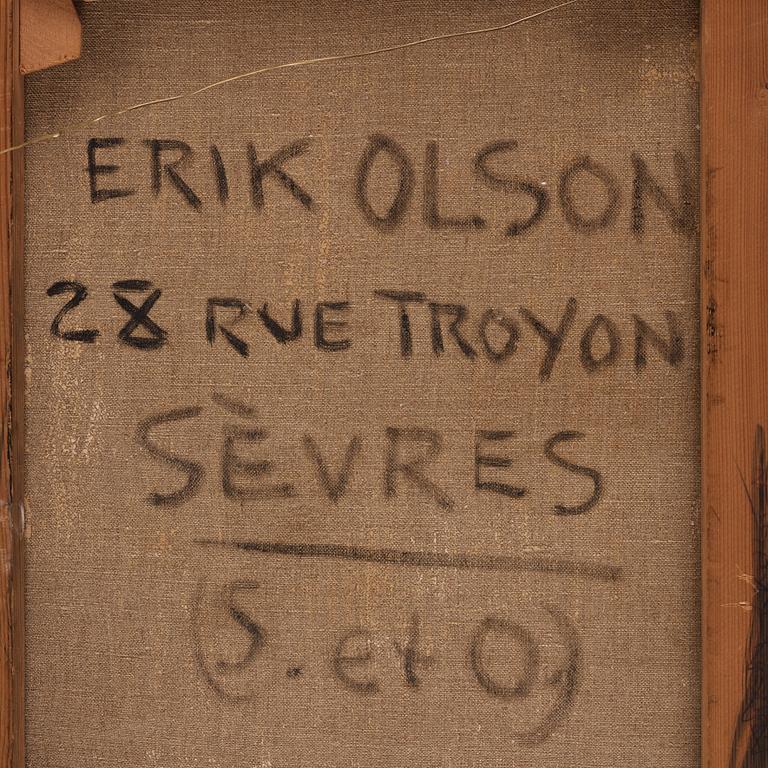 ERIK OLSON
28 RUE TROYON
SÈVRES
(S. et O.)